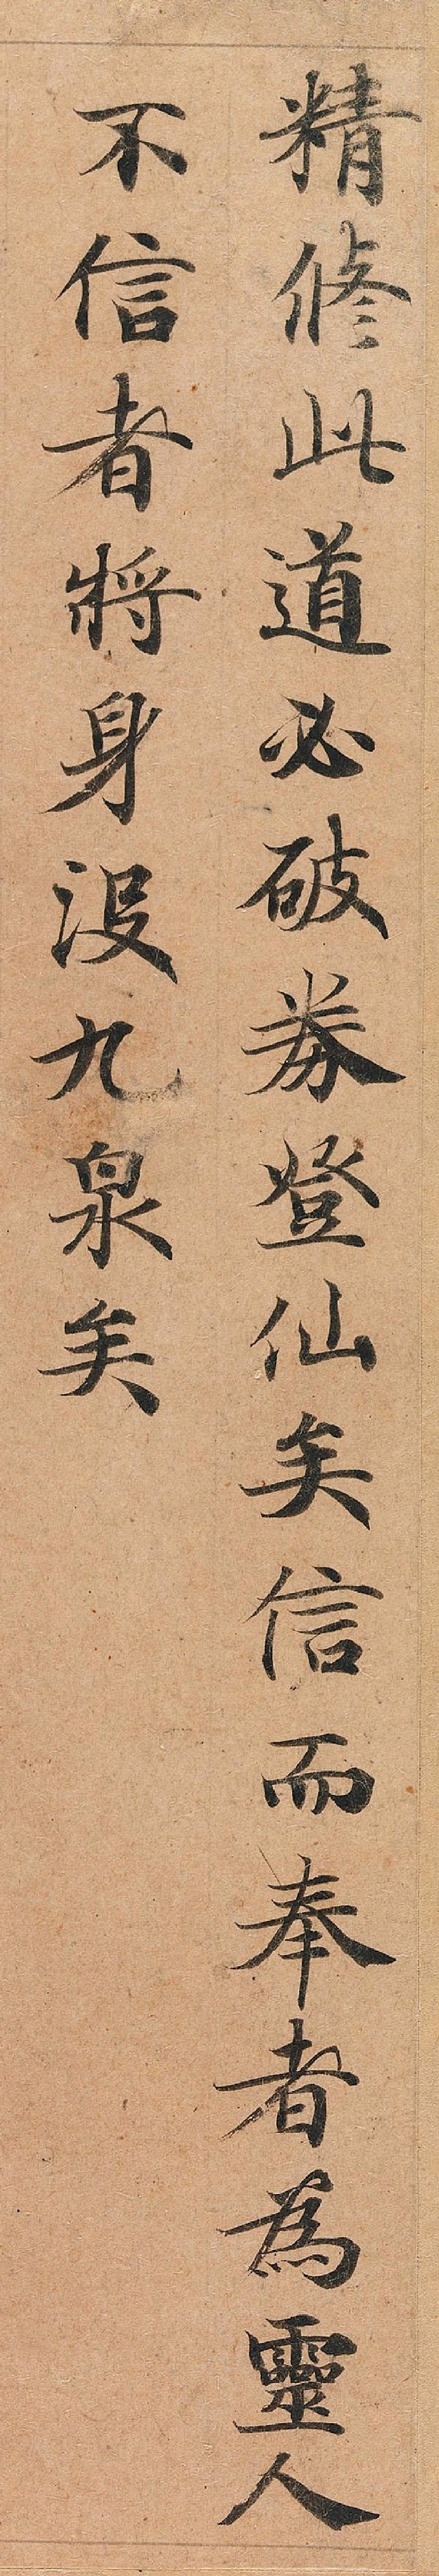 精脩此道必破券登仙矣信而奉者為靈人
不信者將身沒九泉矣